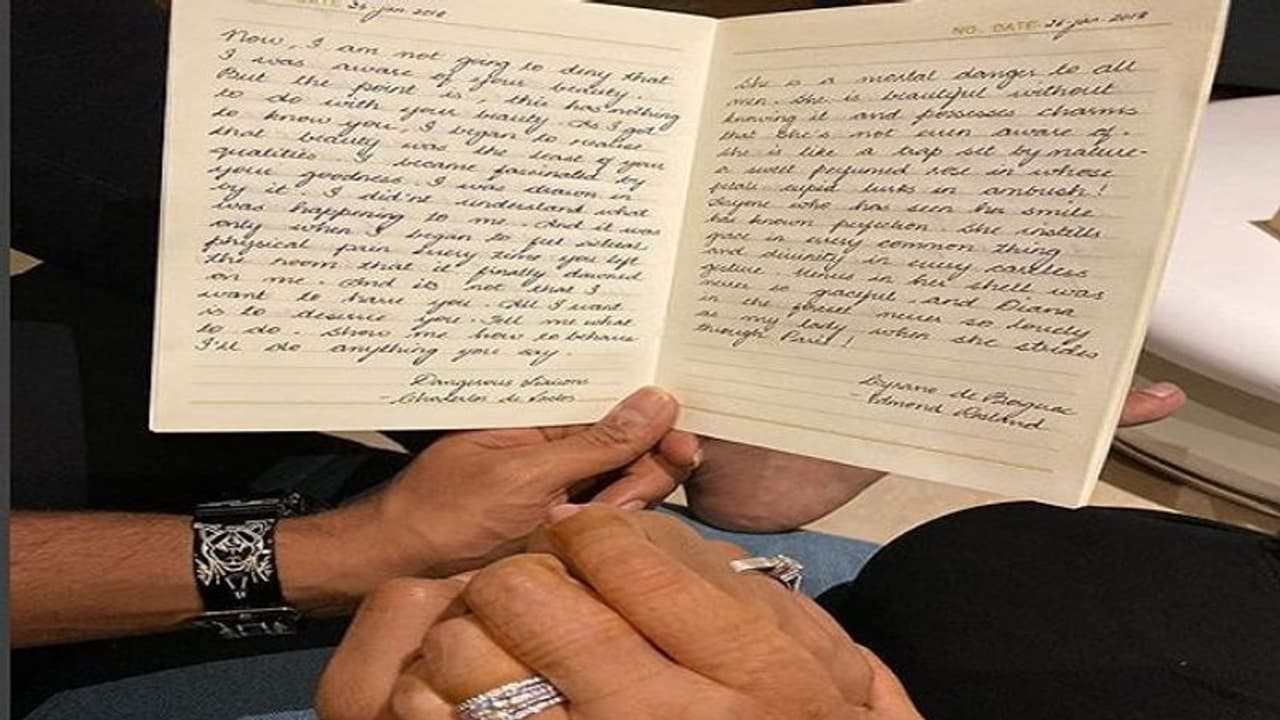 DATE 26-Jan 2018
Now, I am not going to deny that
I was aware of your beauty.
But the point is, this has nothing
to do with your beauty. As I got
to know you, I began to realise
that beauty was the least of your
qualities. I became fascinated by
your goodness. I was drawn in
by it. I did'nt understand what
was happening to me. And it was
only when I began to feel actual
physical pain every time you left
the room that it finally dawned
on me. And its not that I
want to have you. All I want
is to deserve you. Tell me what
to do. Show me how to behave
I'll do anything you say.
Dangerous Liaisons
- de Laclos
NO. DATE 26-Jan-2018
She is a mortal danger to all
men. She is beautiful without
knowing it and possesses charms
that she's not even aware of.
She is like a trap set by nature-
a sweet perfumed rose in whose
petals cupid lurks in ambush!
Anyone who has seen her smile
has known perfection. She instills
grace in every common thing
and divinity in every careless
gesture. Venus in her shell was
never so graceful, and Diana
in the forest never so lovely
as my lady when she strides
through Paris!
Cyrano de
- Edmond